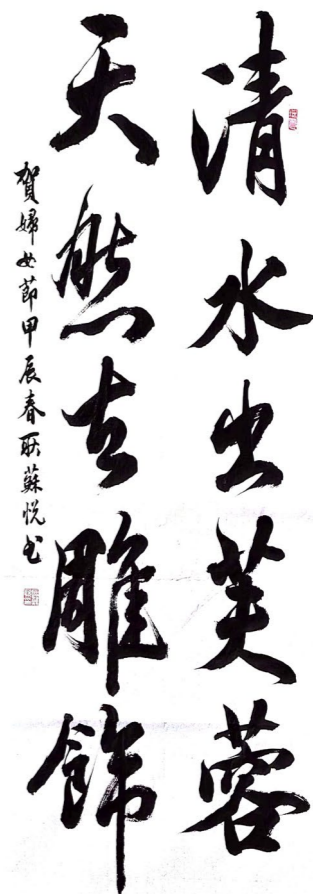 清水出芙蓉
天然去雕飾
賀婦女節甲辰春耿蘇悦书